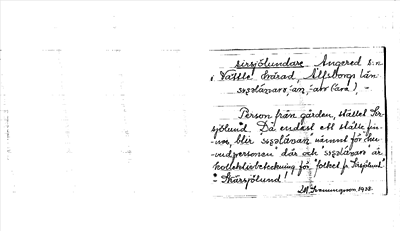 sirsjölundare Angered s:n
i Vättle härad, Älfsborgs län
-an,
Person från gården, stället Sir-
sjölund. Då endast ett ställe fin-
nes, blir nämnt för hu-
vudpersonen där och är
kollektivbeteckning för "folket på Sirsjölund"
= Skärsjölund!
1928.